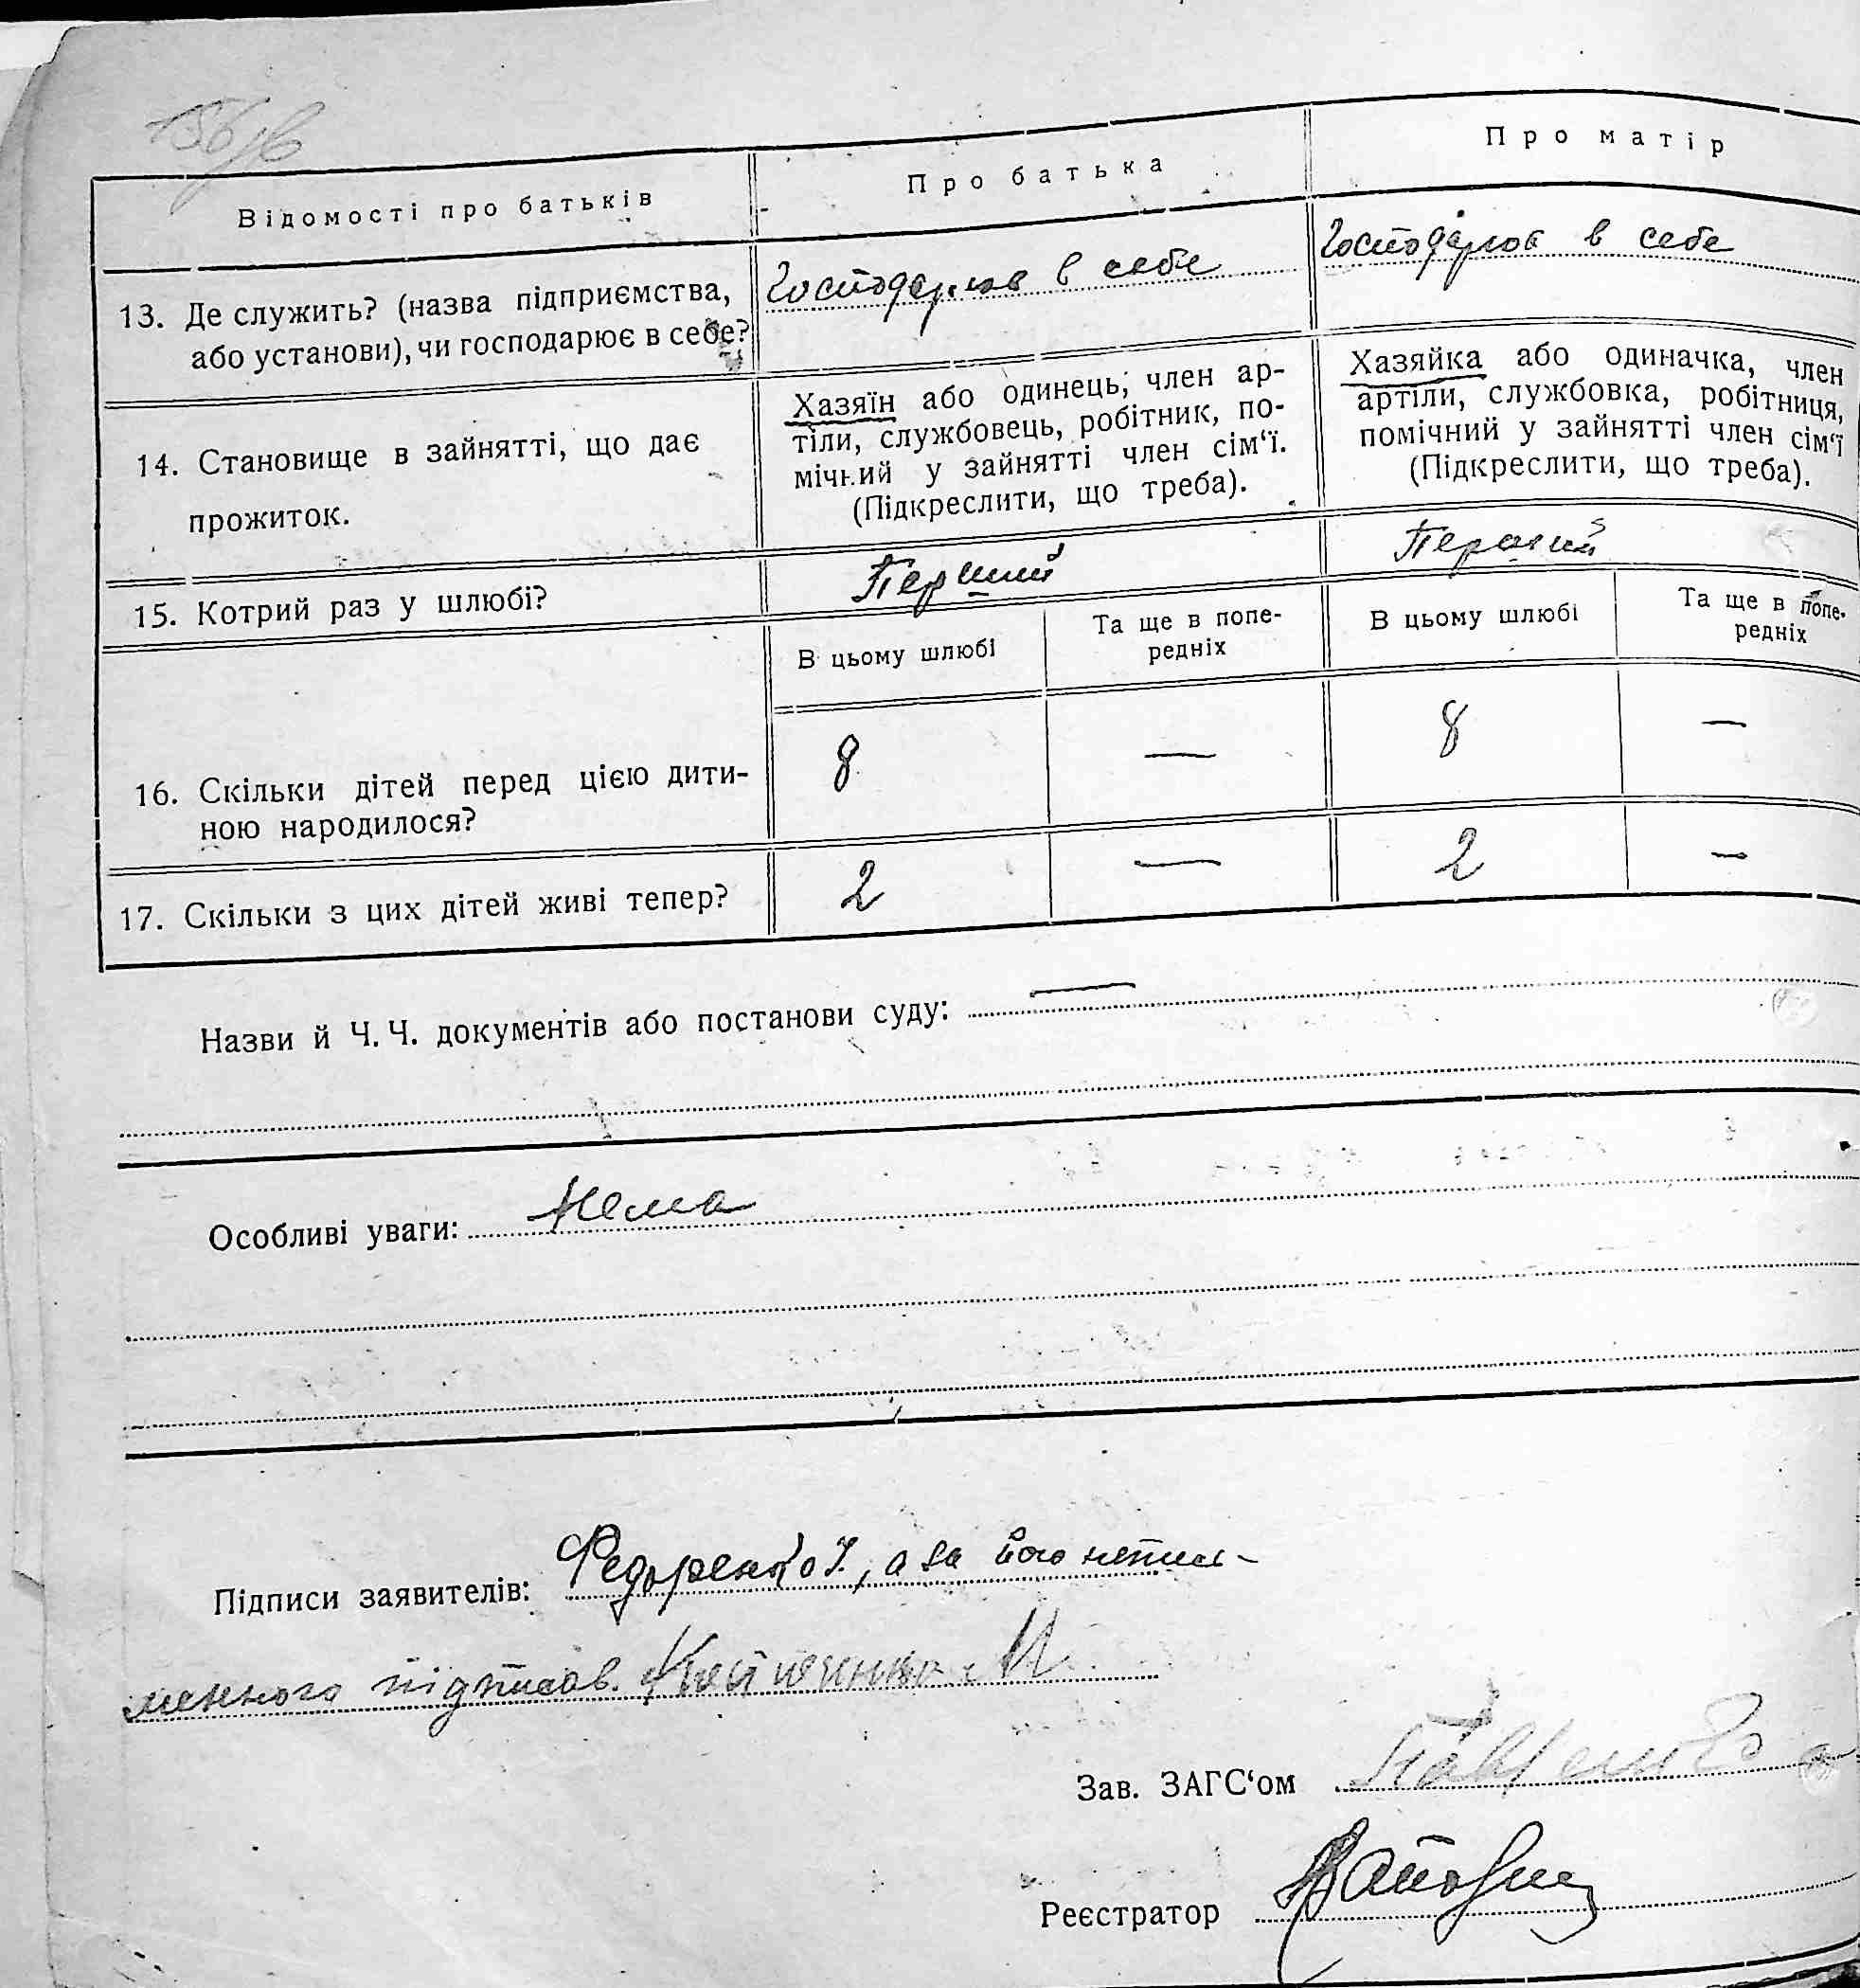 156/в
Відомості про батьків
Про батька
Про матір
13. Де служить? (назва підприємства,
або установи), чи господарює в себе?
Господарює в себе
Господарює в себе
14. Становище в зайнятті, що дає
прожиток.
Хазяїн або одинець, член ар-
тіли, службовець, робітник, по-
мічний у зайнятті член сім‘ї.
(Підкреслити, що треба).
Хазяйка або одиначка, член
артіли, службовка, робітниця,
помічний у зайнятті член сім‘ї
(Підкреслити, що треба).
15. Котрий раз у шлюбі?
Перший
Перший
В цьому шлюбі
Та ще в попе-
редніх
В цьому шлюбі
Та ще в попе-
редніх
16. Скільки дітей перед цією дити-
ною народилося?
8
—
8
—
17. Скільки з цих дітей живі тепер?
2
—
2
—
Назви й Ч. Ч. документів або постанови суду: —
Особливі уваги: Нема
Підписи заявителів: Федоренко І., а за його непись-
менного підписав
Зав. ЗАГС‘ом
Реєстратор